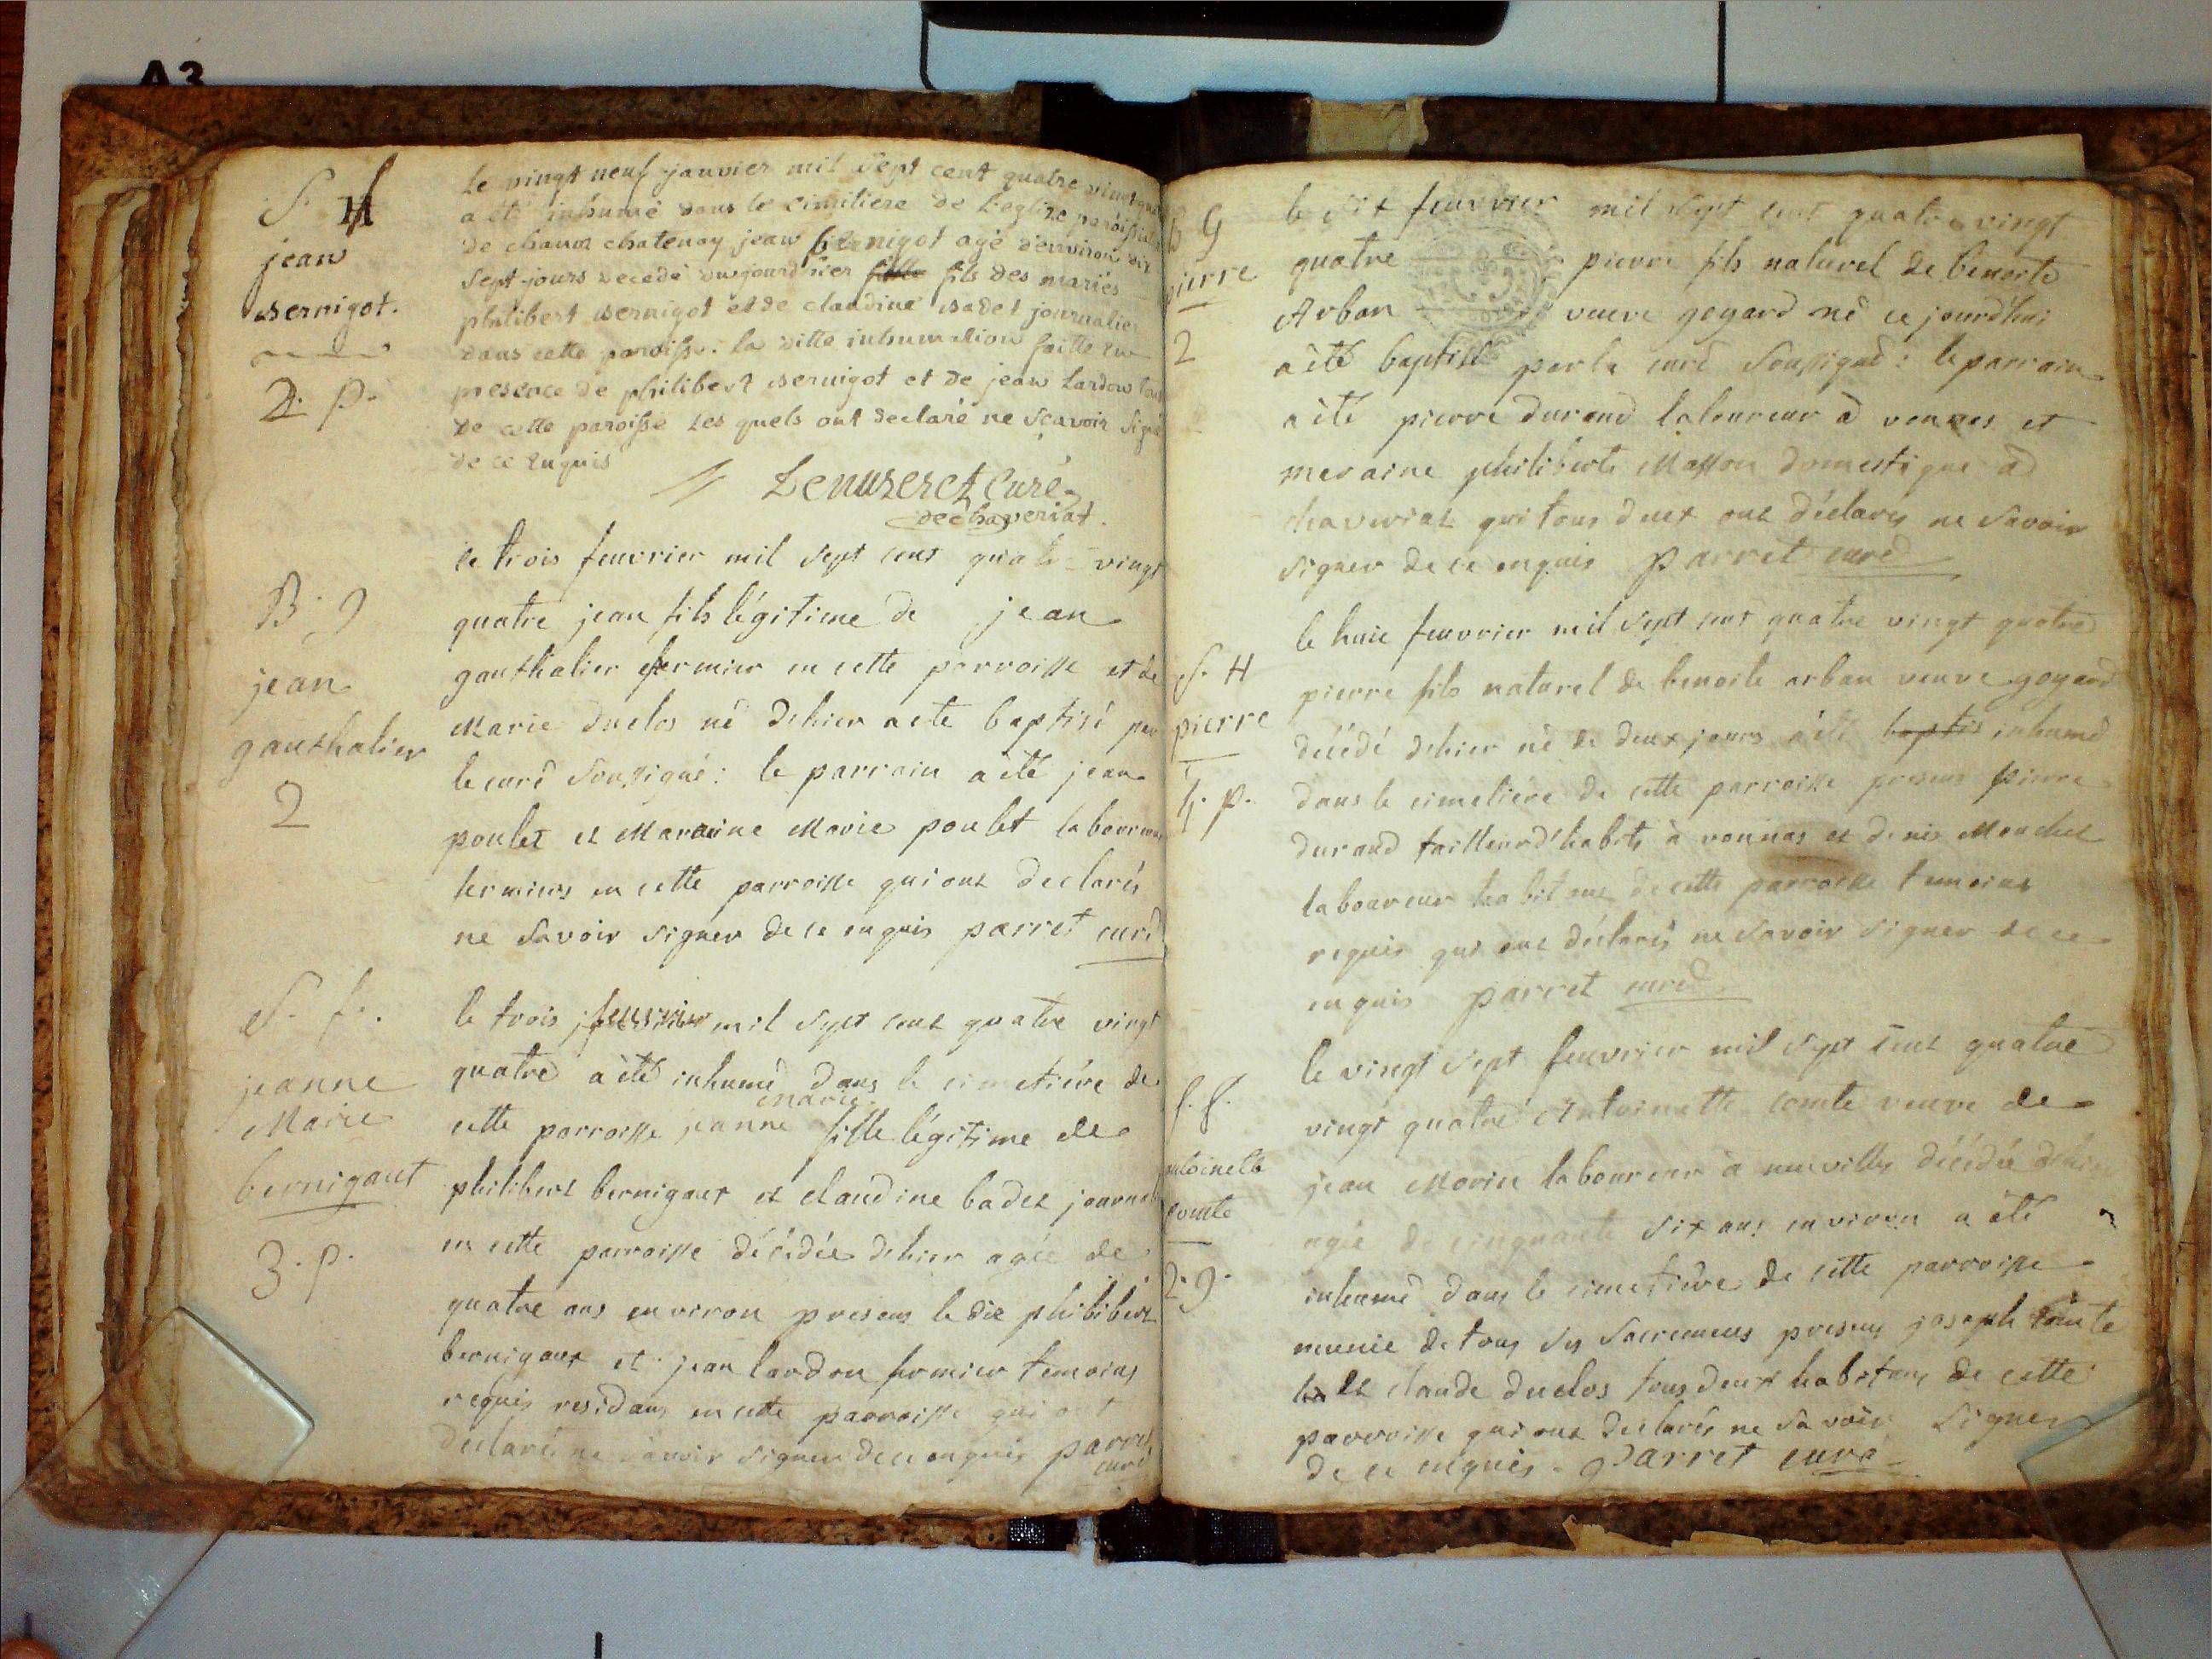 A3
S H
jean
bernigot.
2. p.
Le vingt neuf janvier mil sept cent quatre vingt
a été inhumé dans le cimitiere de L'eglise paroissiale
de chanoz chatenay jean bernigot agé d'environ dix
sept jours decedé du jourd'hier fils des mariés
philibert bernigot et de claudine badet journalier
dans cette paroisse. la ditte inhumation faitte en
presence de philibert bernigot et de jean Lardon tous
de cette paroisse Les quels ont declaré ne scavoir signé
de ce enquis
curé
de chaveriat.
B. g
jean
gauthalier
2
le trois feuvrier mil sept cent quatre vingt
quatre jean fils légitime de jean
gauthalier fermier en cette parroisse et de
Marie duclos né dehier a ete baptisé par
le curé soussigné : le parrain a été jean
poulet et Maraine Marie poulet laboureurs
fermiers en cette parroisse qui ont declarés
ne savoir signer de ce enquis parret curé
S. f.
jeanne
Marie
bernigaut
3. p.
le trois feuvrier mil sept cent quatre vingt
quatre a été inhumé dans le cimetiére de
cette parroisse jeanne marie fille légitime de
philibert bernigaut et claudine badet journal
en cette parroisse décédée dehier agée de
quatre ans environ presens le dit philibert
bernigaut et jean lardon fermier temoins
requis residans en cette parroisse qui ont
declaré ne savoir signer de ce enquis parret
curé
B G
pierre
2
le six feuvrier mil sept cent quatre vingt
quatre pierre fils naturel de benoite
Arban veuve goyard né ce jourd'hui
a été baptisé par le curé soussigné : le parrain
a été pierre durand laboureur à vonnas et
meraine philiberte Masson domestique à
chaveriat qui tous deux ont déclarés ne savoir
signer de ce enquis parret curé
S. H
pierre
4. p.
le huit feuvrier mil sept cent quatre vingt quatre
pierre fils naturel de benoite arban veuve goyard
décédé dehier né de deux jours a été baptis inhumé
dans le cimetiére de cette parroisse presens pierre
durand tailleur d'habits à vonnas et denis Mouchet
laboureur habitans de cette parroisse temoins
requis qui ont déclarés ne savoir signer de ce
enquis parret curé
S. f.
antoinette
comte
2. g.
le vingt sept feuvrier mil sept cent quatre
vingt quatre Antoinette comte veuve de
jean Morin laboureur à neuville décédée dehier
agée de cinquante six ans environ a été
inhumé dans le cimetiére de cette parroisse
munie de tous ses sacremens presens joseph comte
et claude duclos tous deux habitans de cette
parroisse qui ont declarés ne savoir signer
de ce enquis - parret curé